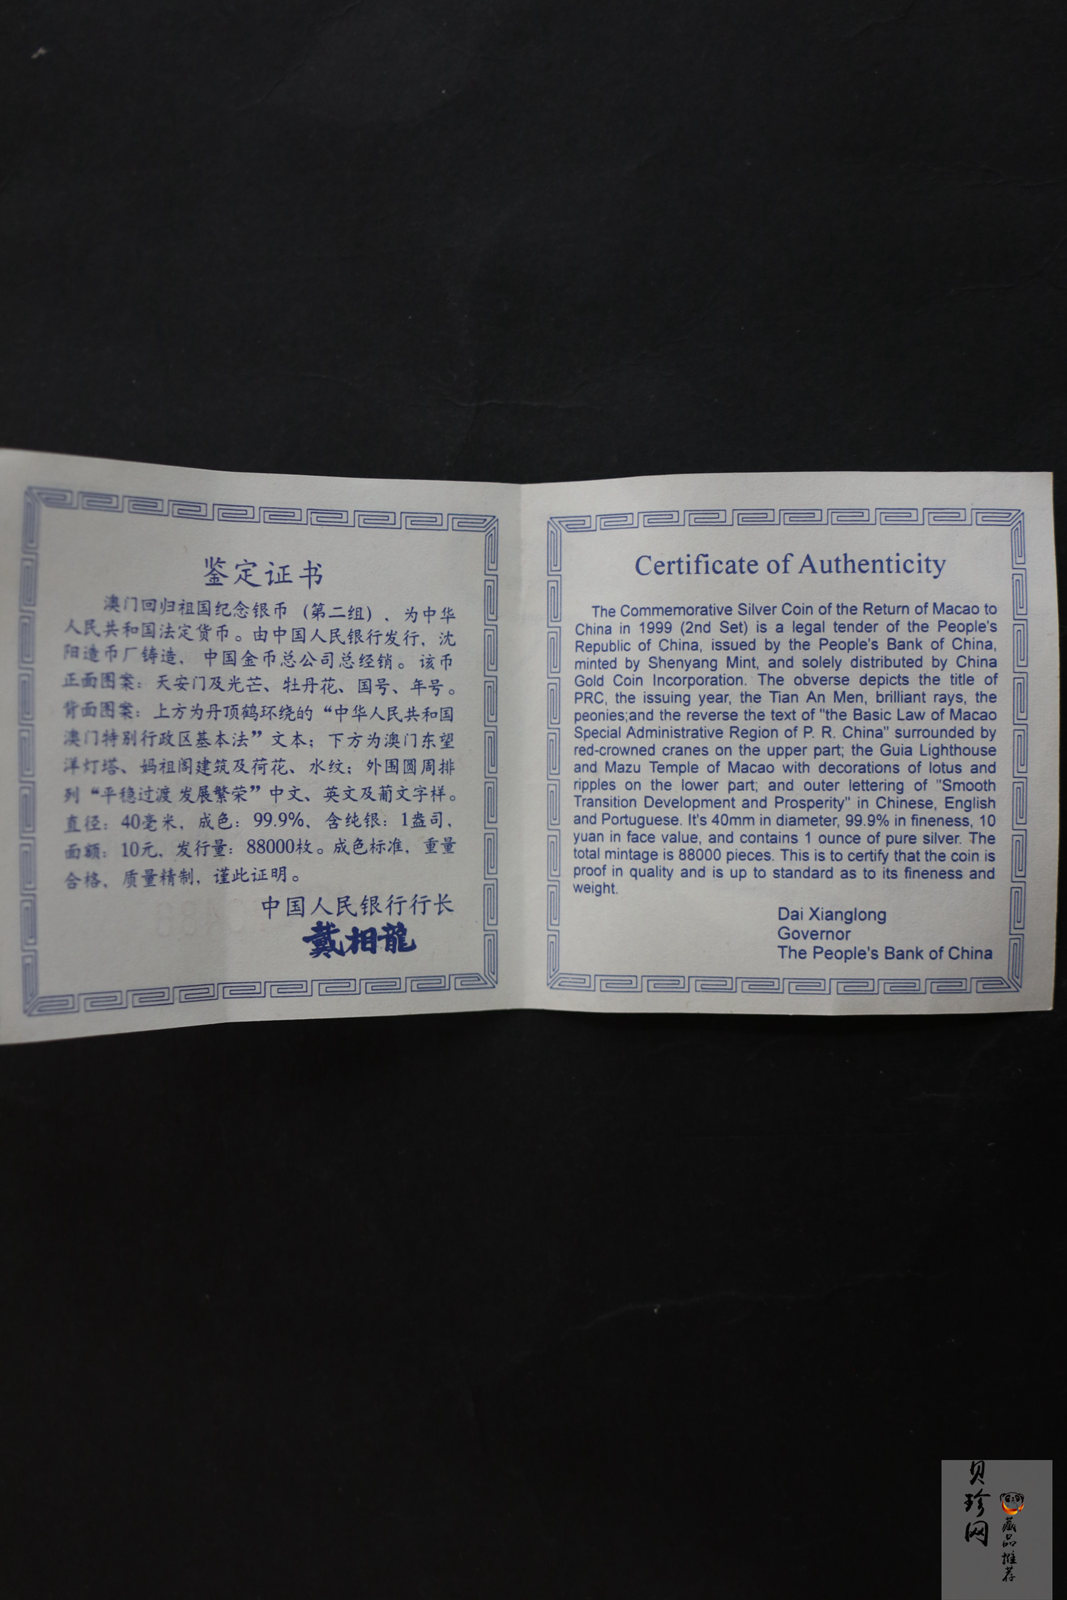 鉴定证书
澳门回归祖国纪念银币（第二组），为中华
人民共和国法定货币。由中国人民银行发行、沈
阳造币厂铸造，中国金币总公司总经销。该币
正面图案：天安门及光芒、牡丹花、国号、年号。
背面图案：上方为丹顶鹤环绕的“中华人民共和国
澳门特别行政区基本法”文本；下方为澳门东望
洋灯塔、妈祖阁建筑及荷花、水纹；外围圆周排
列“平稳过渡 发展繁荣”中文、英文及葡文字样。
直径：40毫米，成色：99.9%、含纯银：1盎司，
面额：10元，发行量：88000枚。成色标准，重量
合格，质量精制，谨此证明。
中国人民银行行长
戴相龍
Certificate of Authenticity
The Commemorative Silver Coin of the Return of Macao to
China in 1999 (2nd Set) is a legal tender of the People's
Republic of China, issued by the People's Bank of China,
minted by Shenyang Mint, and solely distributed by China
Gold Coin Incorporation. The obverse depicts the title of
PRC, the issuing year, the Tian An Men, brilliant rays, the
peonies;and the reverse the text of "the Basic Law of Macao
Special Administrative Region of P. R. China" surrounded by
red-crowned cranes on the upper part; the Guia Lighthouse
and Mazu Temple of Macao with decorations of lotus and
ripples on the lower part; and outer lettering of "Smooth
Transition Development and Prosperity" in Chinese, English
and Portuguese. It's 40mm in diameter, 99.9% in fineness, 10
yuan in face value, and contains 1 ounce of pure silver. The
total mintage is 88000 pieces. This is to certify that the coin is
proof in quality and is up to standard as to its fineness and
weight.
Dai Xianglong
Governor
The People's Bank of China
贝珍网
藏品推荐